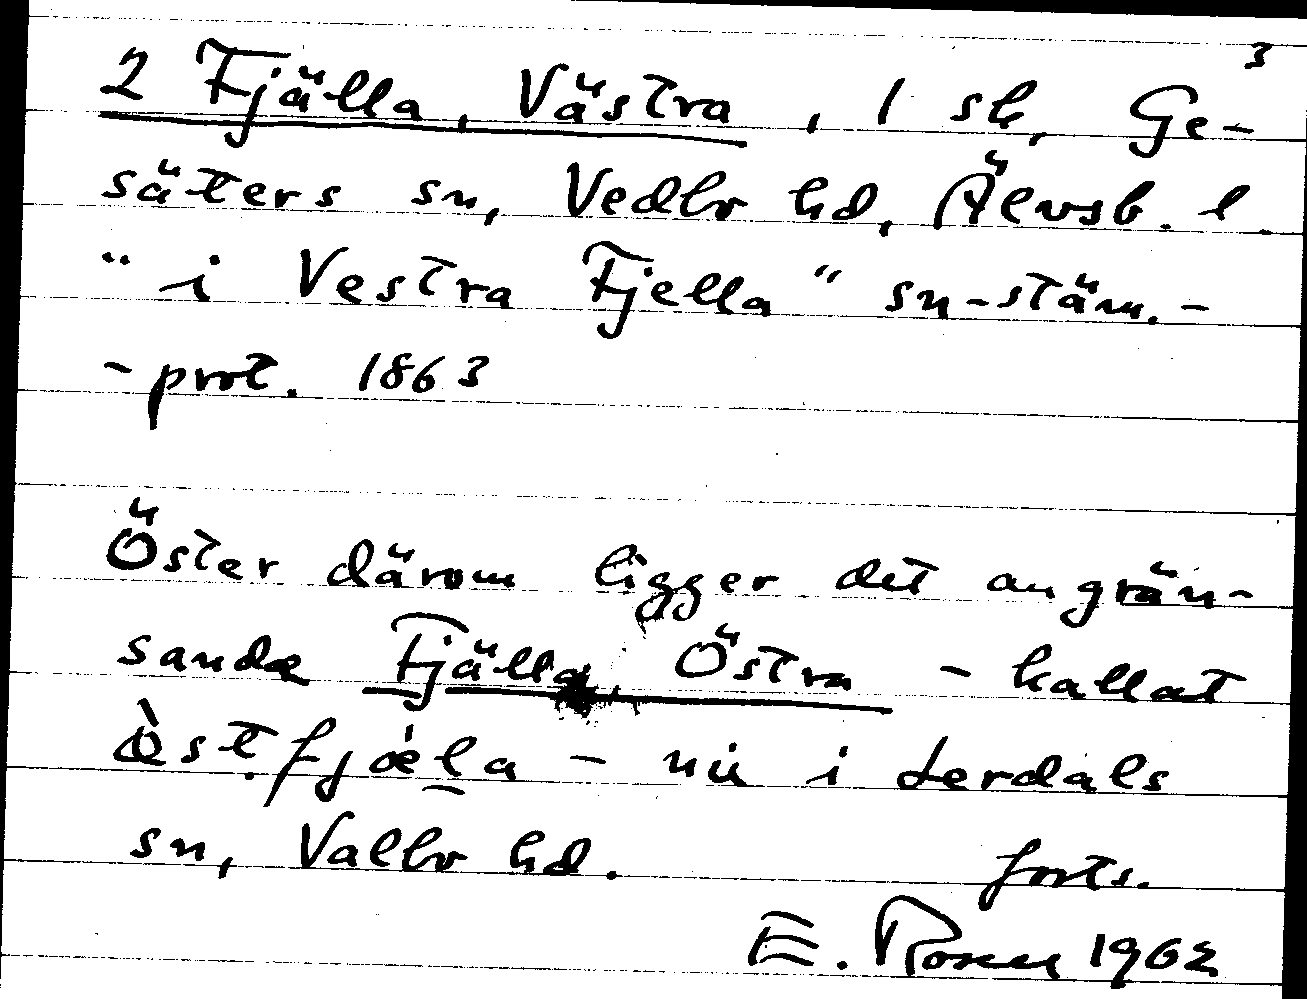 3
2 Fjälla, Västra, 1 sk, Ge-
säters sn, Vedbo hd, Älvsb. l.
"i Vestra Fjella" sn-stäm.-
-prot. 1863
Öster därom ligger det angrän-
sande Fjälla, Östra - kallat
òst.fjæ̀l̯a - nu i Lerdals
sn, Valbo hd. forts.
E. Rosen 1962